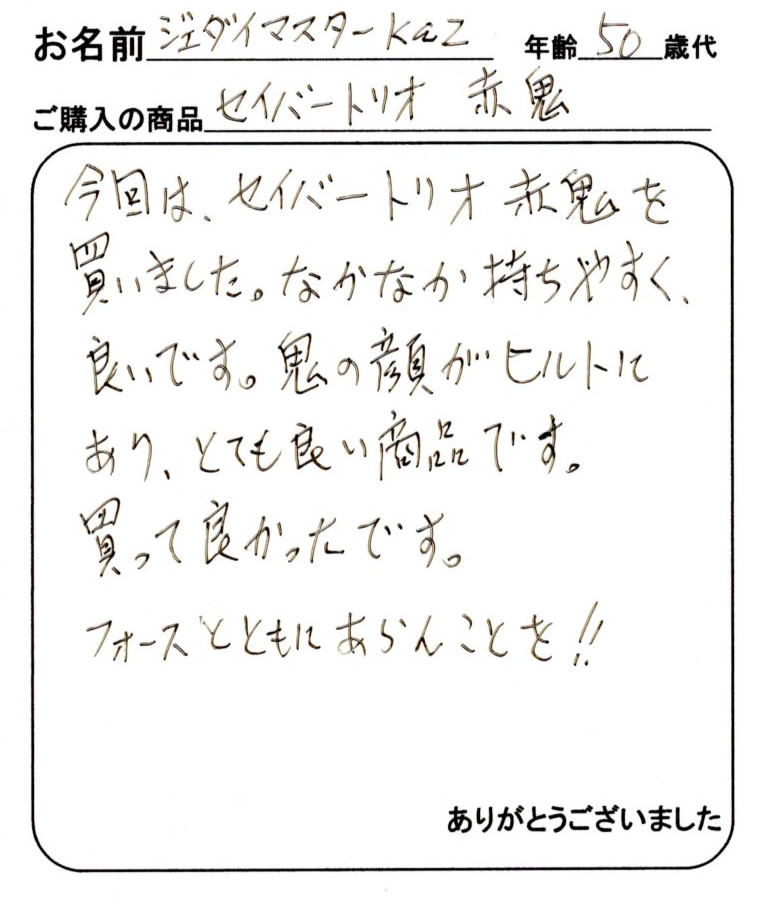 お名前 ジェダイマスターKaz 年齢 50 歳代
ご購入の商品 セイバートリオ 赤鬼
今回は、セイバートリオ 赤鬼を
買いました。なかなか持ちやすく、
良いです。鬼の顔がヒルトに
あり、とても良い商品です。
買って良かったです。
フォースとともにあらんことを!!
ありがとうございました